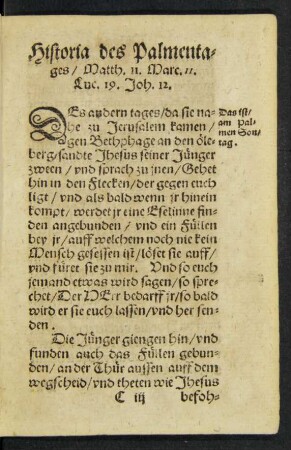 Historia des Palmenta-
ges / Matth. 21. Marc. 11.
Luc. 19. Joh. 12.
DEs andern tages / da sie na-
he zu Jerusalem kamen /
gen Bethphage an den öle-
berg / sandte Jhesus seiner Jünger
zween / vnd sprach zu jnen / Gehet
hin in den Flecken / der gegen euch
ligt / vnd als bald wenn jr hinein
kompt / werdet jr eine Eselinne fin-
den angebunden / vnd ein Füllen
bey jr / auff welchem noch nie kein
Mensch gesessen ist / löset sie auff /
vnd füret sie zu mir. Vnd so euch
jemand etwas wird sagen / so spre-
chet / Der HErr bedarff jr / so bald
wird er sie euch lassen / vnd her sen-
den.
Die Jünger giengen hin / vnd
funden auch das Füllen gebun-
den / an der Thür aussen auff dem
wegscheid / vnd theten wie Jhesus
C iij befoh-
Das ist /
am Pal-
men Son-
tag.